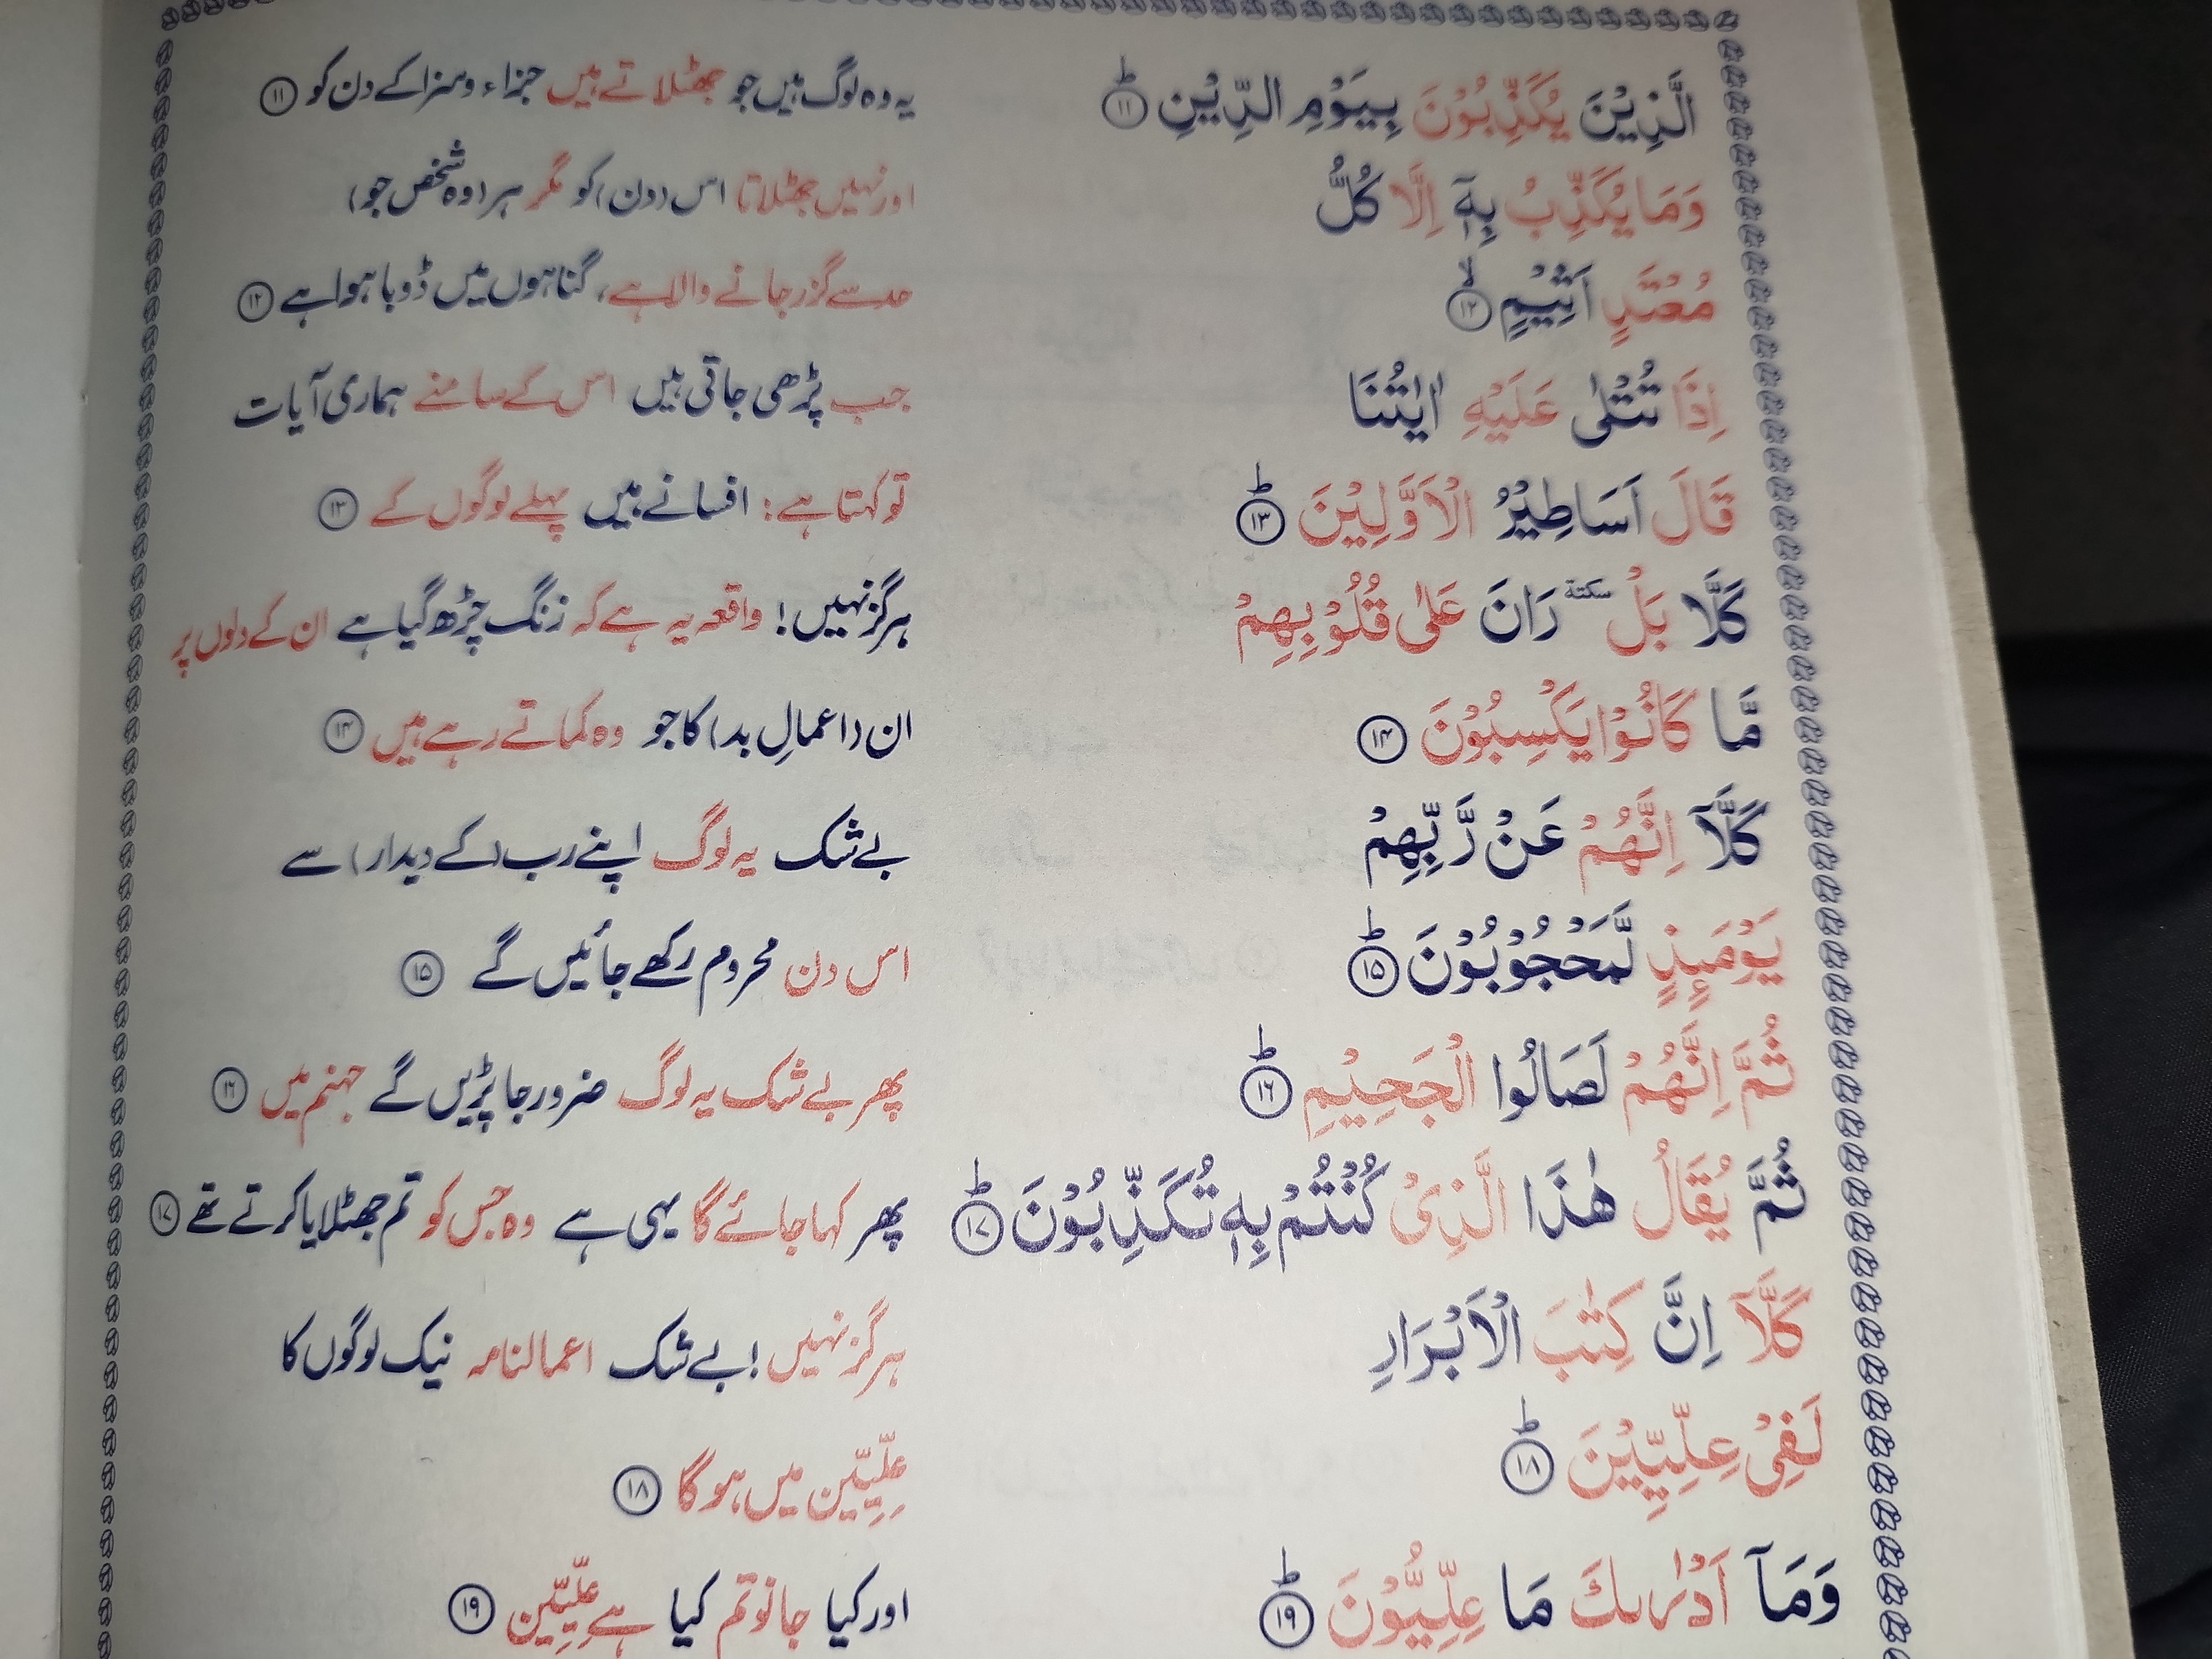 الَّذِيْنَ يُكَذِّبُوْنَ بِيَوْمِ الدِّيْنِ ؕ ۱۱ یہ وہ لوگ ہیں جو جھٹلاتے ہیں جزاء و سزا کے دن کو ۱۱
وَمَا يُكَذِّبُ بِهٖٓ اِلَّا كُلُّ اور نہیں جھٹلاتا اس (دن) کو مگر ہر (وہ شخص جو)
مُعْتَدٍ اَثِيْمٍ ۙ ۱۲ حد سے گزر جانے والا ہے، گناہوں میں ڈوبا ہوا ہے ۱۲
اِذَا تُتْلٰى عَلَيْهِ اٰيٰتُنَا جب پڑھی جاتی ہیں اس کے سامنے ہماری آیات
قَالَ اَسَاطِيْرُ الْاَوَّلِيْنَ ؕ ۱۳ تو کہتا ہے: افسانے ہیں پہلے لوگوں کے ۱۳
كَلَّا بَلْ سكتة رَانَ عَلٰى قُلُوْبِهِمْ ہرگز نہیں! واقعہ یہ ہے کہ زنگ چڑھ گیا ہے ان کے دلوں پر
مَّا كَانُوْا يَكْسِبُوْنَ ۱۴ ان (اعمالِ بد) کا جو وہ کماتے رہے ہیں ۱۴
كَلَّآ اِنَّهُمْ عَنْ رَّبِّهِمْ بے شک یہ لوگ اپنے رب (کے دیدار) سے
يَوْمَىِٕذٍ لَّمَحْجُوْبُوْنَ ؕ ۱۵ اس دن محروم رکھے جائیں گے ۱۵
ثُمَّ اِنَّهُمْ لَصَالُوا الْجَحِيْمِ ؕ ۱۶ پھر بے شک یہ لوگ ضرور جا پڑیں گے جہنم میں ۱۶
ثُمَّ يُقَالُ هٰذَا الَّذِىْ كُنْتُمْ بِهٖ تُكَذِّبُوْنَ ؕ ۱۷ پھر کہا جائے گا یہی ہے وہ جس کو تم جھٹلایا کرتے تھے ۱۷
كَلَّآ اِنَّ كِتٰبَ الْاَبْرَارِ ہرگز نہیں! بے شک اعمالنامہ نیک لوگوں کا
لَفِىْ عِلِّيِّيْنَ ؕ ۱۸ عِلِّیِّین میں ہوگا ۱۸
وَمَآ اَدْرٰىكَ مَا عِلِّيُّوْنَ ؕ ۱۹ اور کیا جانو تم کیا ہے عِلِّیِّین ۱۹